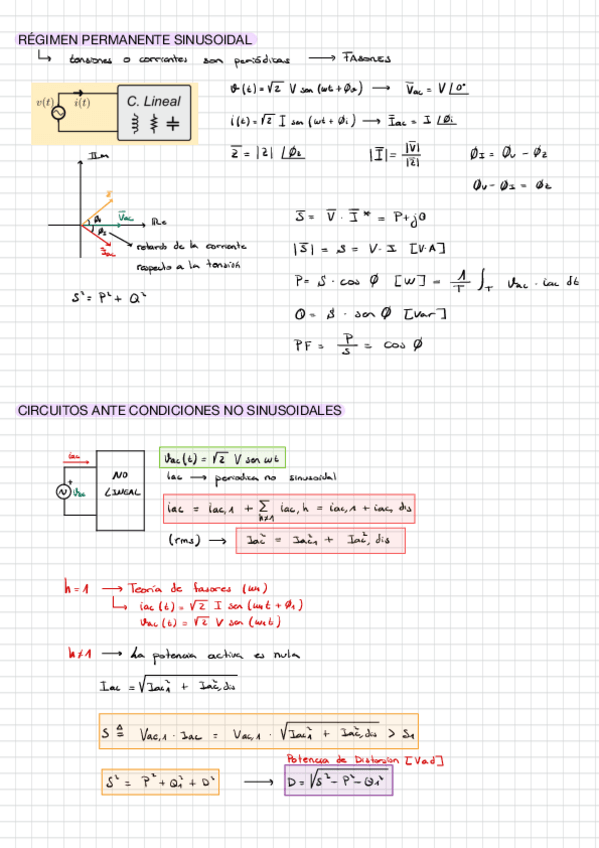 RÉGIMEN PERMANENTE SINUSOIDAL
↳ tensiones o corrientes son periódicas → FASORES
v(t) = √2 V sen (wt + Øv) → V̄ac = V ∠0°
v(t) i(t) C. Lineal
i(t) = √2 I sen (wt + Øi) → Īac = I ∠Øi
Z̄ = |Z| ∠Øz |Ī| = |V̄| / |Z| ØI = Øv - Øz
IIm
Øv - ØI = Øz
V̄ac IRe
Īac
retardo de la corriente
respecto a la tensión
S̄ = V̄ · Ī* = P + jQ
|S̄| = S = V · I [V·A]
P = S · cos Ø [W] = 1/T ∫T vac · iac dt
S² = P² + Q²
Q = S · sen Ø [Var]
PF = P/S = cos Ø
CIRCUITOS ANTE CONDICIONES NO SINUSOIDALES
iac
vac
NO
LINEAL
vac(t) = √2 V sen wt
iac → periodica no sinusoidal
iac = iac,1 + Σ h≠1 iac,h = iac,1 + iac, dis
(rms) → Iac² = Iac1² + Iac², dis
h = 1 → Teoría de fasores (w1)
↳ iac(t) = √2 I sen (w1t + Ø1)
vac(t) = √2 V sen (w1t)
h≠1 → La potencia activa es nula
Iac = √(Iac1² + Iac², dis)
S ≜ Vac,1 · Iac = Vac,1 · √(Iac1² + Iac², dis) > S1
Potencia de Distorsion [Vad]
S² = P² + Q1² + D² → D = √(S² - P² - Q1²)